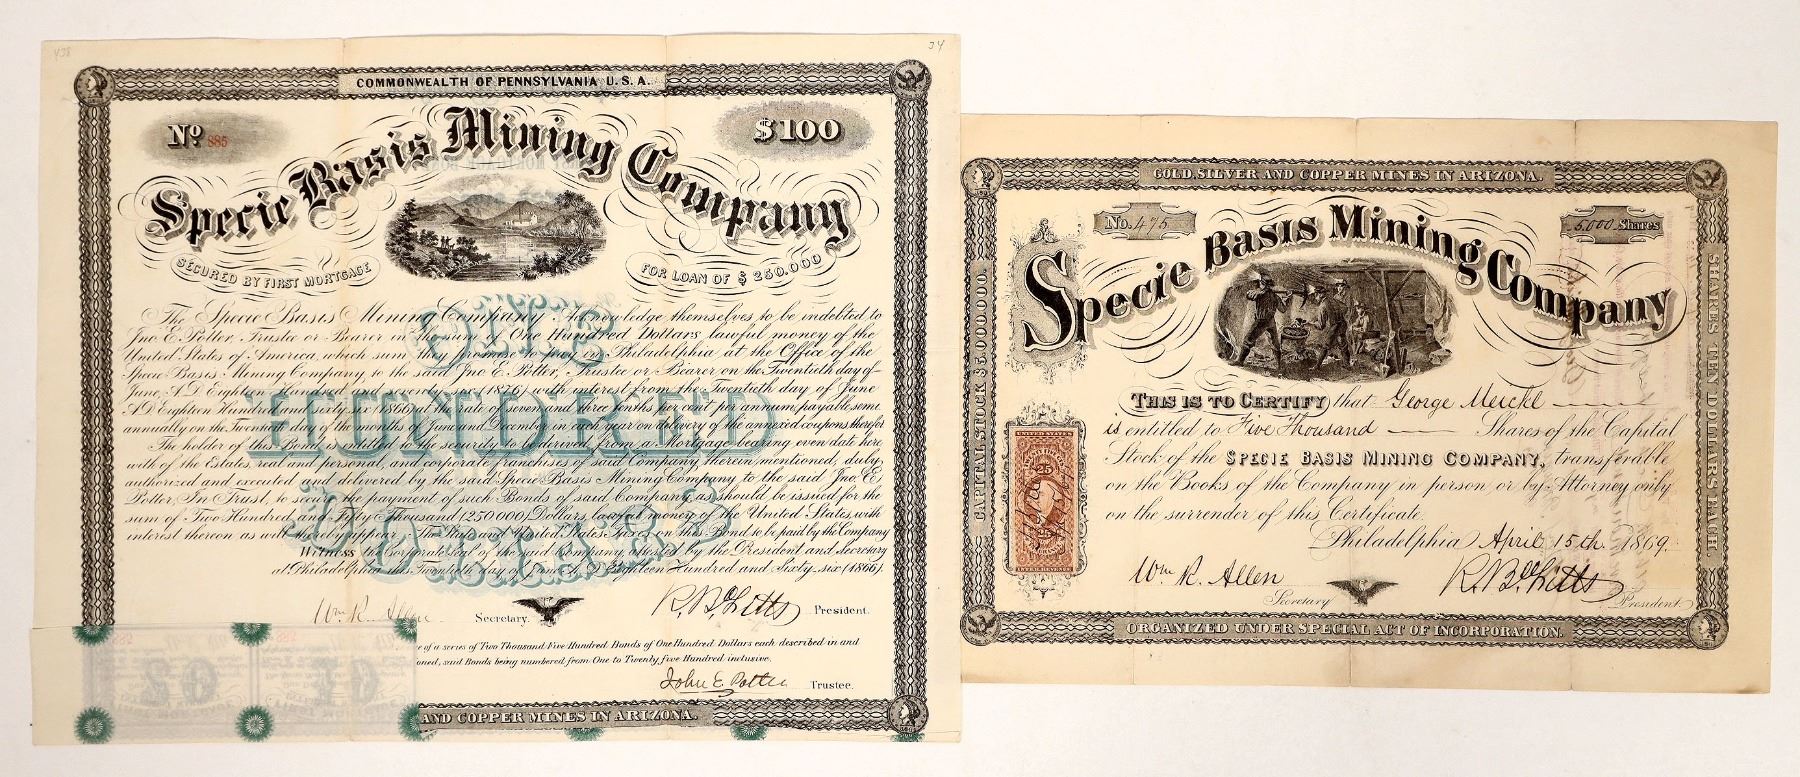 438
34
COMMONWEALTH OF PENNSYLVANIA U.S.A.
No 885
$100
Specie Basis Mining Company
SECURED BY FIRST MORTGAGE
FOR LOAN OF $ 250.000
ONE
HUNDRED
DOLLARS
The Specie Basis Mining Company Acknowledge themselves to be indebted to
Jno E. Potter, Trustee or Bearer in the sum of One Hundred Dollars lawful money of the
United States of America, which sum they promise to pay in Philadelphia at the Office of the
Specie Basis Mining Company to the said Jno E. Potter, Trustee or Bearer on the Twentieth day of
June A.D. Eighteen Hundred and seventy six (1876) with interest from the Twentieth day of June
A.D. Eighteen Hundred and sixty six (1866) at the rate of seven and three tenths per cent per annum, payable semi
annually on the Twentieth day of the months of June and December in each year on delivery of the annexed coupons therefor
The holder of this Bond is entitled to the security to be derived from a Mortgage bearing even date here
with of the Estates, real and personal, and corporate franchises of said Company, therein mentioned, duly
authorized and executed and delivered by the said Specie Basis Mining Company to the said Jno E.
Potter, In Trust, to secure the payment of such Bonds of said Company as should be issued for the
sum of Two Hundred and Fifty Thousand (250 000) Dollars, lawful money of the United States, with
interest thereon as will thereby appear. The State and United States Taxes on this Bond to be paid by the Company
Witness the Corporate Seal of the said Company attested by the President and Secretary
at Philadelphia this Twentieth day of June A.D Eighteen Hundred and Sixty-six (1866).
Wm R. Allen Secretary.
R. B. Fitts President.
e of a series of Two Thousand Five Hundred Bonds of One Hundred Dollars each described in and
oned, said Bonds being numbered from One to Twenty five Hundred inclusive.
John E. Potter Trustee.
885
885
AND COPPER MINES IN ARIZONA.
GOLD, SILVER AND COPPER MINES IN ARIZONA.
No. 475
5,000 Shares
Specie Basis Mining Company
CAPITAL STOCK $5,000,000.
SHARES TEN DOLLARS EACH.
THIS IS TO CERTIFY that George Meickl
is entitled to Five Thousand Shares of the Capital
Stock of the SPECIE BASIS MINING COMPANY, transferable
on the Books of the Company in person or by Attorney only
on the surrender of this Certificate.
Philadelphia April 15th 1869.
25
25
Wm R. Allen
Secretary
R. B. Fitts
President
ORGANIZED UNDER SPECIAL ACT OF INCORPORATION.